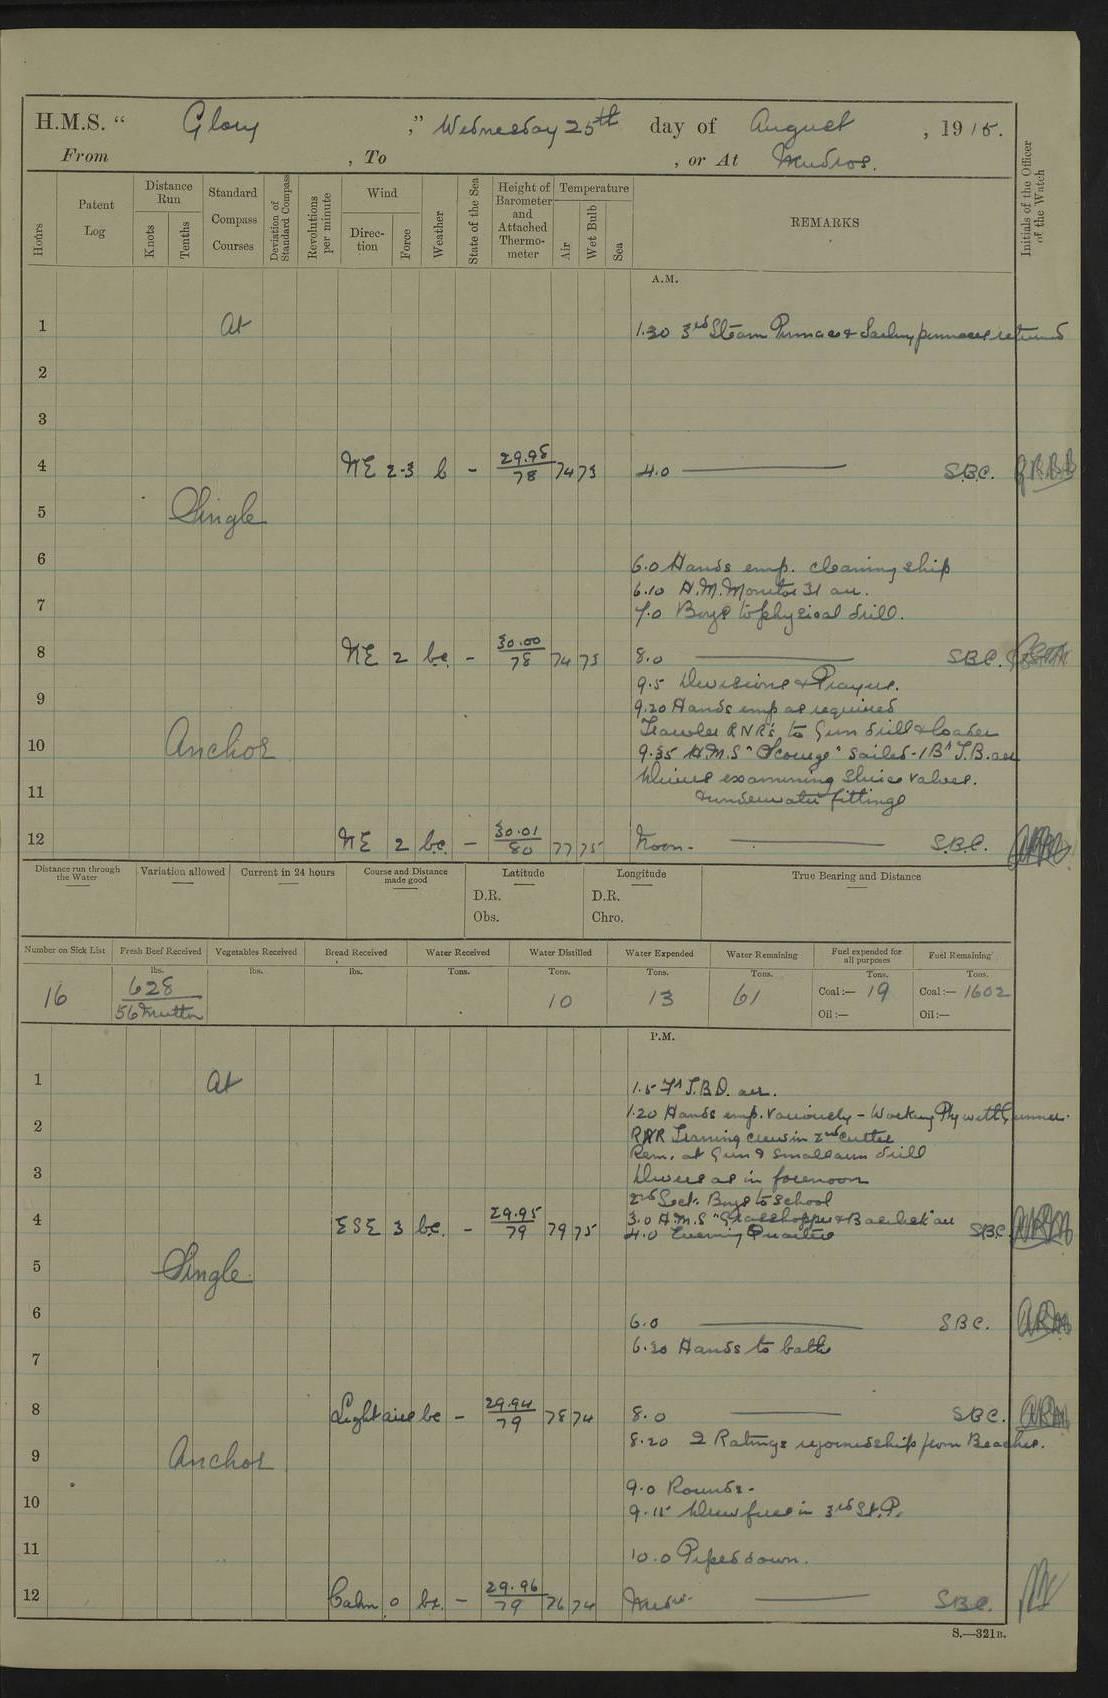 H.M.S. “ Glory ,” Wednesday 25th day of August , 1915.
From , To , or At Mudros.
Hours
Patent Log
Distance Run
Knots
Tenths
Standard Compass Courses
Deviation of Standard Compass
Revolutions per minute
Wind
Direction
Force
Weather
State of the Sea
Height of Barometer and Attached Thermometer
Temperature
Air
Wet Bulb
Sea
REMARKS
Initials of the Officer of the Watch
A.M.
1 At 1.30 3rd Steam Pinnace & Sailing pinnaces returned
2
3
4 NE 2-3 b - 29.98/78 74 73 4.0 S.B.C.
5 Single
6 6.0 Hands emp. cleaning ship
6.10 H.M. Monitor 31 arr.
7 7.0 Boys to physical drill.
8 NE 2 bc. - 30.00/78 74 73 8.0 SBC.
9.5 Divisions & Prayers.
9 9.20 Hands emp as required
Trawler RNR's to Gun drill & loader
10 Anchor 9.35 H.M.S "Scourge" sailed - 1 Bn T.B. arr
Divers examining Sluice valves.
11 & underwater fittings
12 NE 2 bc. - 30.01/80 77 75 Noon. S.B.C.
Distance run through the Water
Variation allowed
Current in 24 hours
Course and Distance made good
Latitude
D.R.
Obs.
Longitude
D.R.
Chro.
True Bearing and Distance
Number on Sick List
Fresh Beef Received
Vegetables Received
Bread Received
Water Received
Water Distilled
Water Expended
Water Remaining
Fuel expended for all purposes
Fuel Remaining
lbs. lbs. lbs. Tons. Tons. Tons. Tons. Tons. Tons.
16 628 10 13 61 Coal:— 19 Coal:— 1602
56 Mutton Oil:— Oil:—
P.M.
1 At 1.5 Fr T.B.D. arr.
1.20 Hands emp. variously - Working Pty with Gunner.
2 RNR Training crews in 2nd Cutter
Rem. at Gun & small arm drill
3 Divers as in forenoon
2nd Sect. Boys to school
4 3.0 H.M.S "Grasshopper & Basilisk" arr
ESE 3 bc. - 29.95/79 79 75 4.0 Evening Quarters SBC
5 Single
6 6.0 SBC.
6.30 Hands to bathe
7
8 Light airs bc - 29.94/79 78 74 8.0 SBC.
8.20 2 Ratings rejoined ship from Beaches.
9 Anchor
9.0 Rounds.
10 9.15 Drew fires in 3rd St. P.
11 10.0 Piped down.
12 Calm 0 bc. - 29.96/79 76 74 Midt. SBC.
S.—321B.